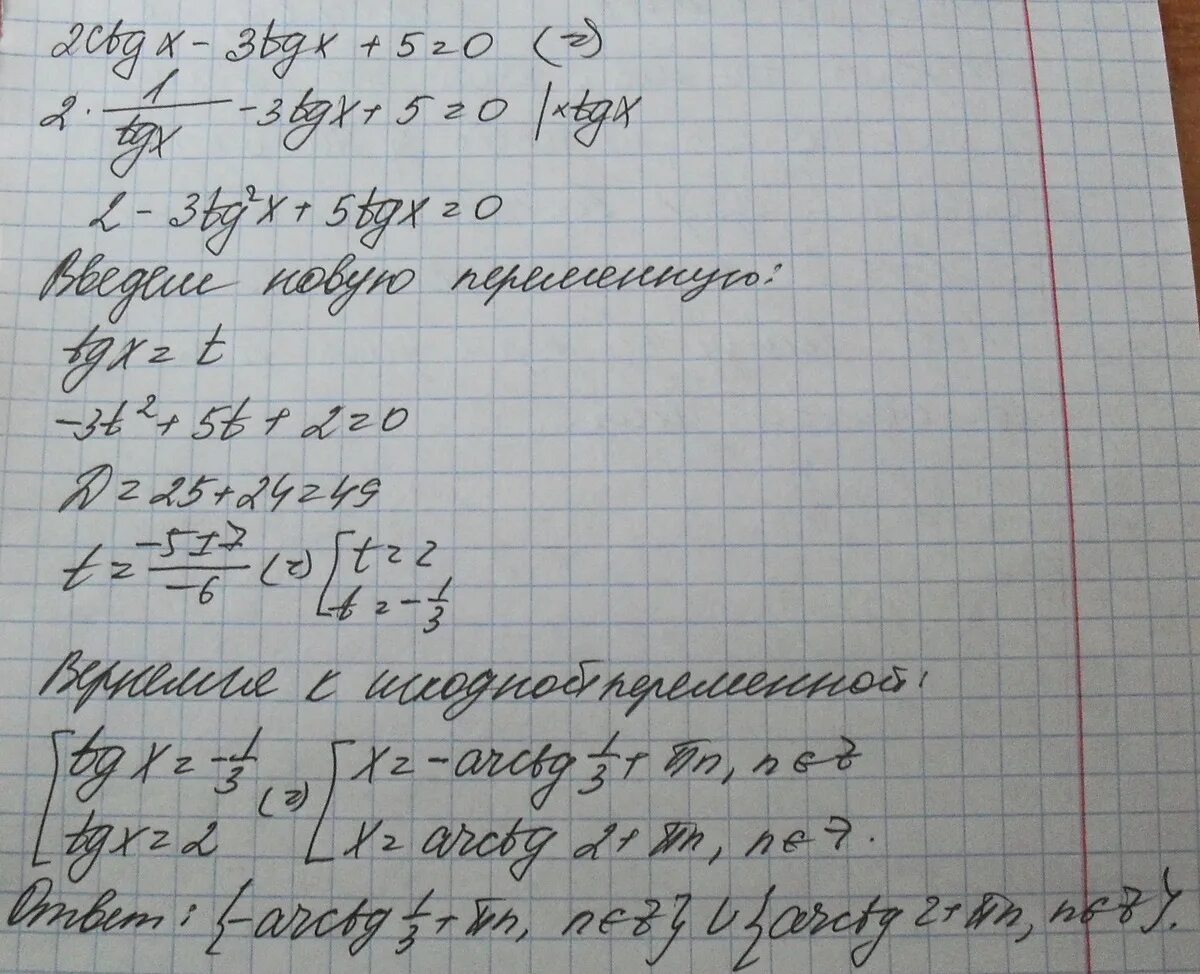 2ctgx - 3tgx + 5 = 0 (=)
2 · 1/tgx - 3tgx + 5 = 0 | × tgx
2 - 3tg²x + 5tgx = 0
Введем новую переменную:
tgx = t
-3t² + 5t + 2 = 0
D = 25 + 24 = 49
t = (-5 ± 7)/-6 (=) [ t = 2
t = -1/3
Вернемся к исходной переменной:
[ tgx = -1/3 (=) [ x = -arctg 1/3 + πn, n ∈ Z
tgx = 2 x = arctg 2 + πn, n ∈ Z.
Ответ: {-arctg 1/3 + πn, n ∈ Z} ∪ {arctg 2 + πn, n ∈ Z}.